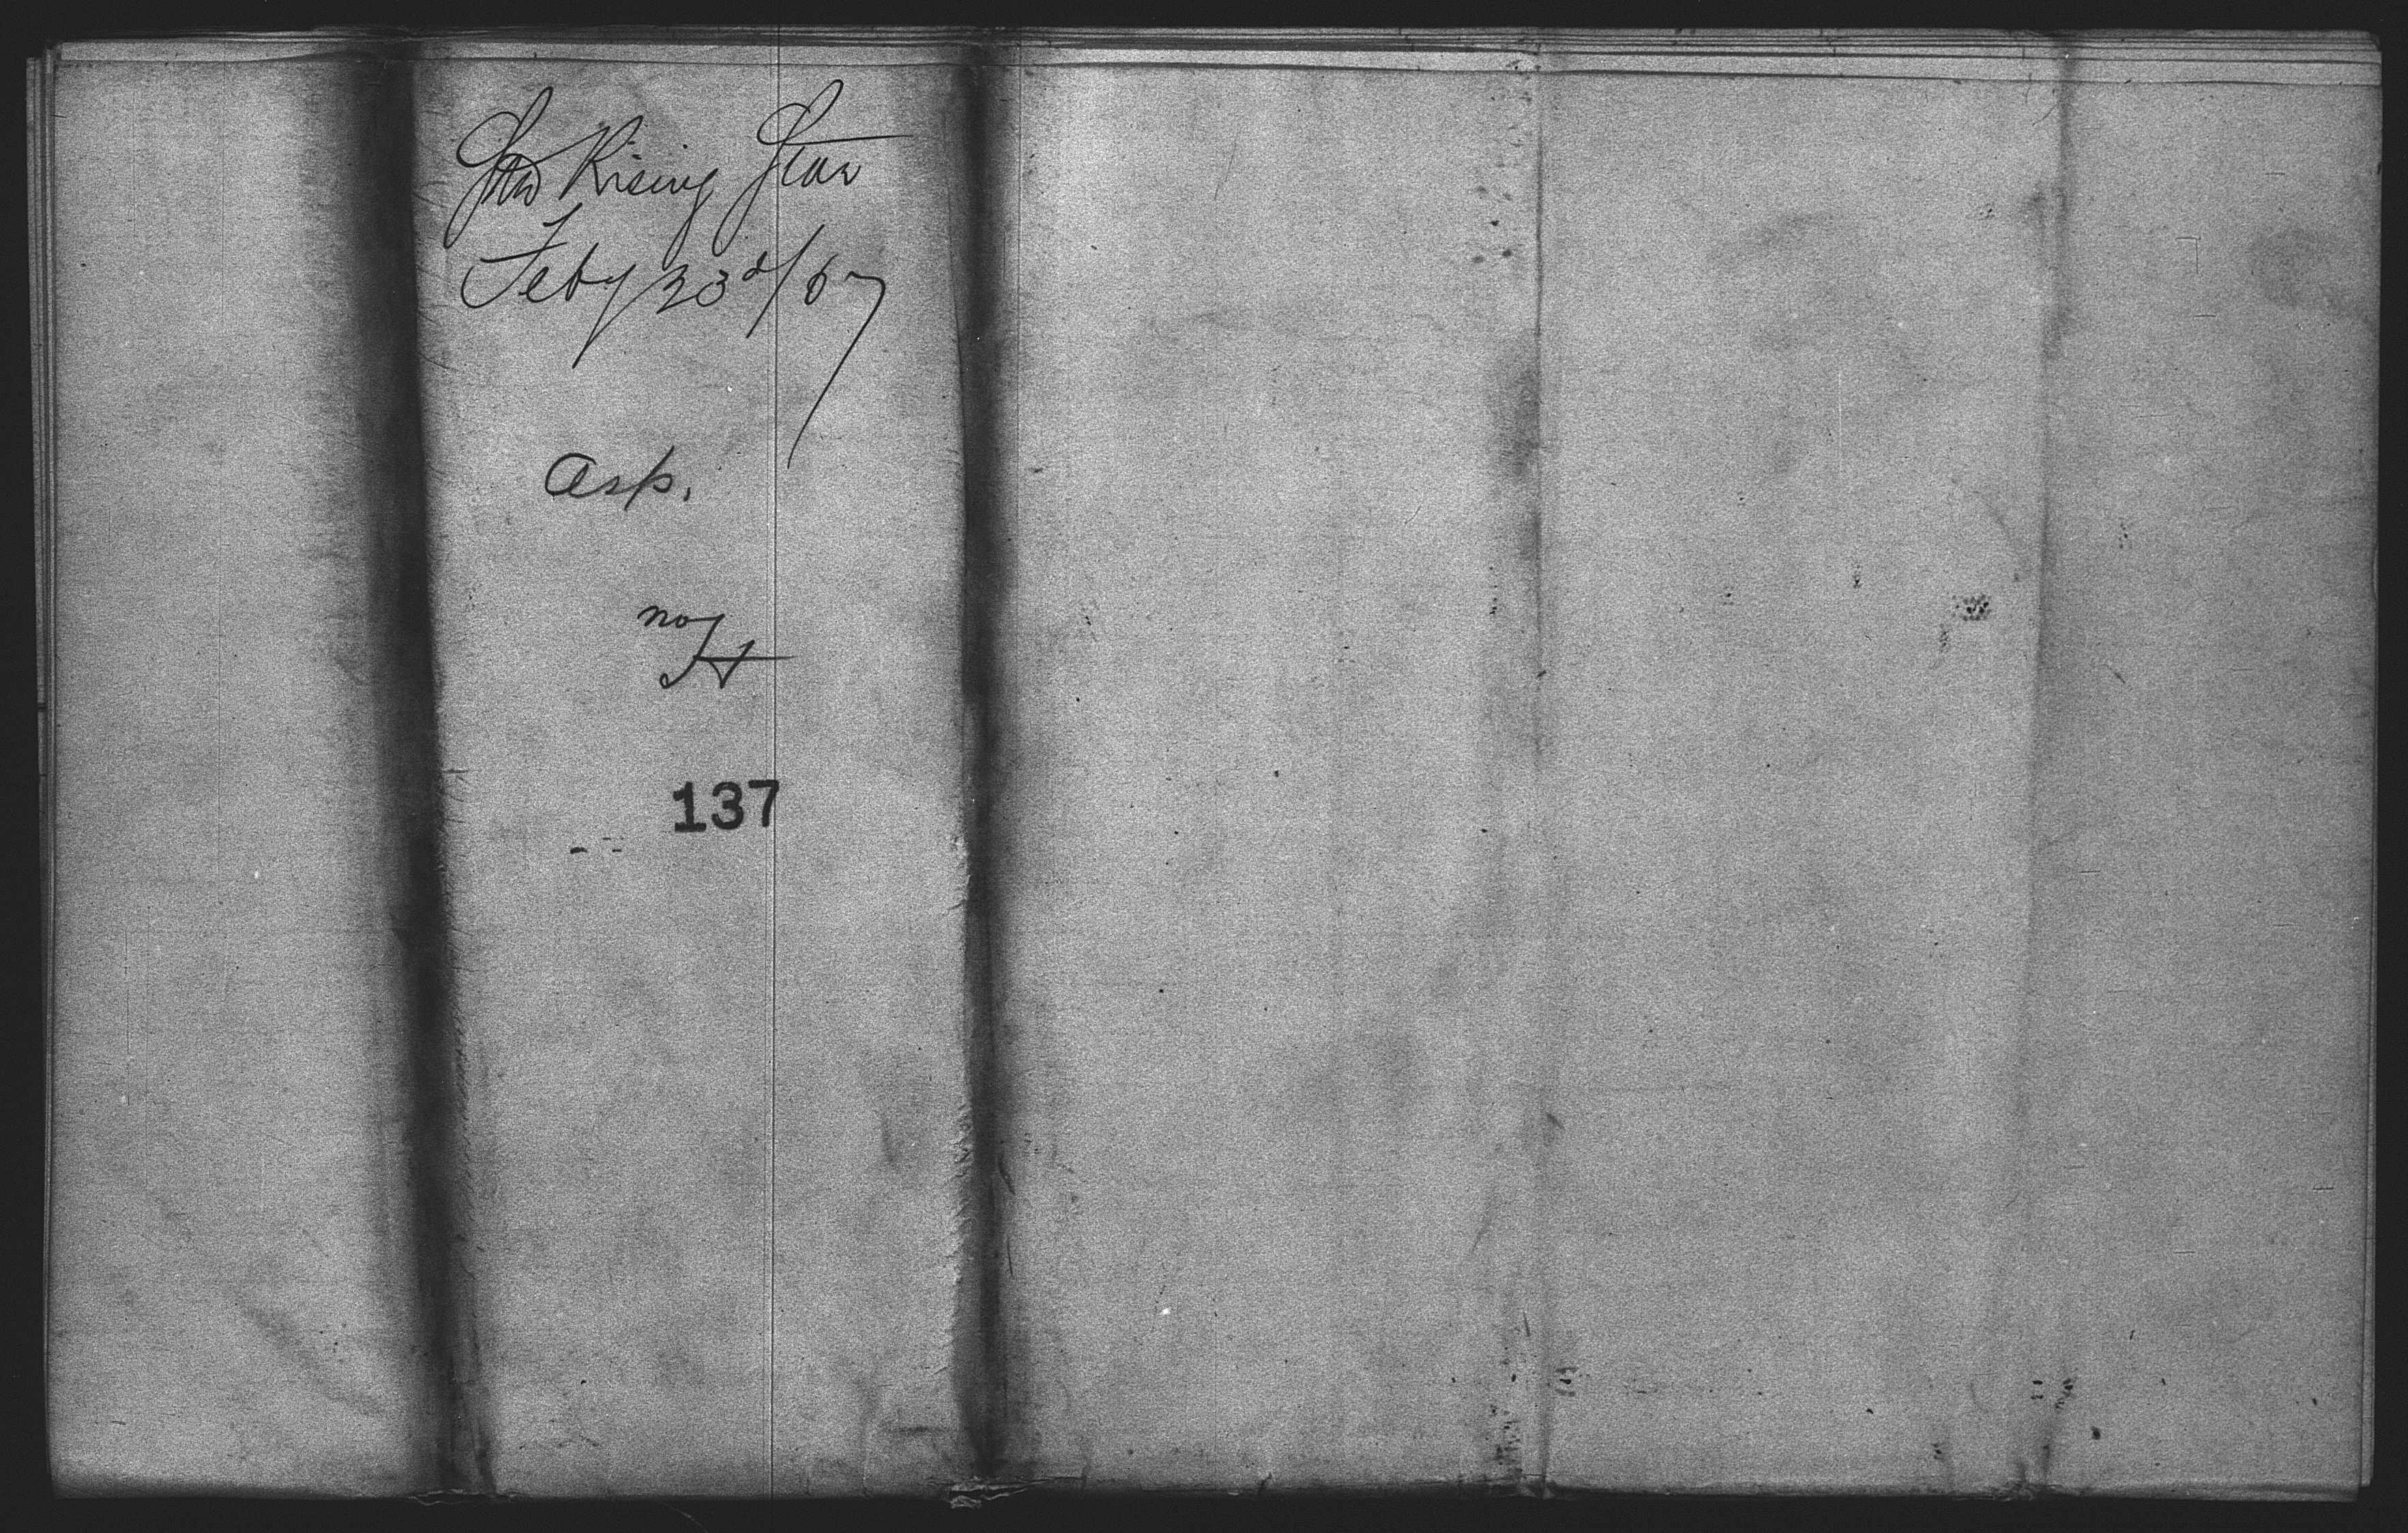 Str Rising Star
Feby 23d/67
Asp.
no
137